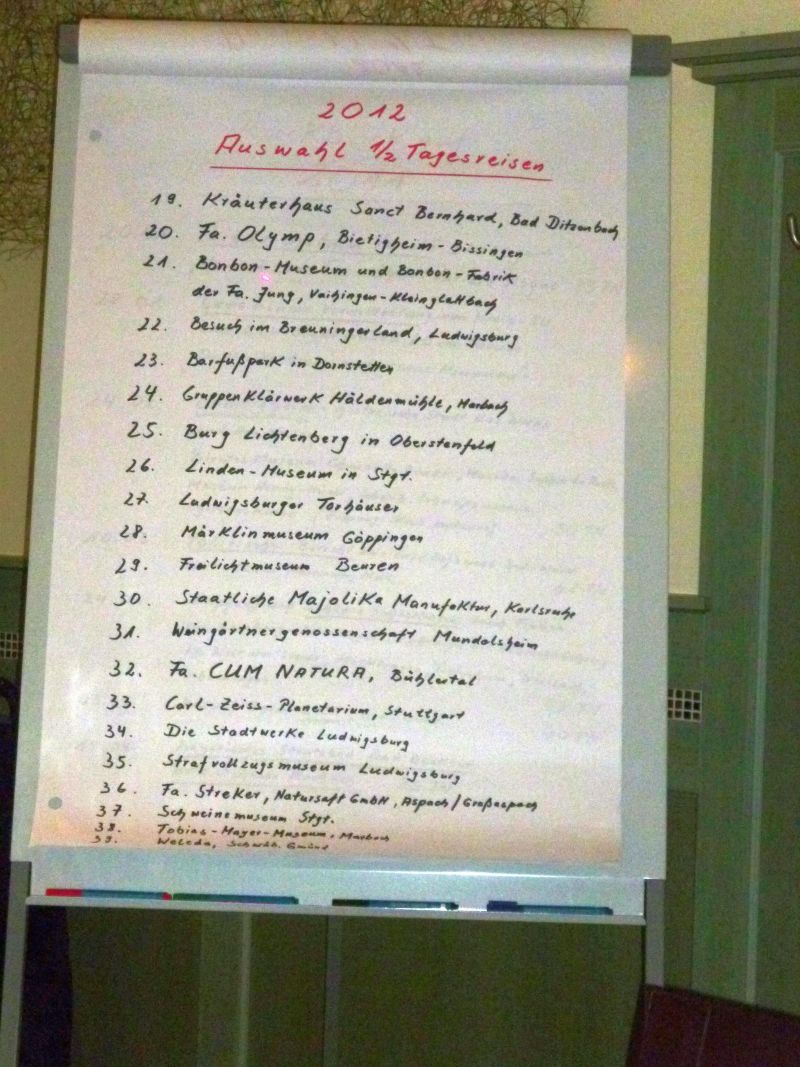 2012
Auswahl 1/2 Tagesreisen
19. Kräuterhaus Sanct Bernhard, Bad Ditzenbach
20. Fa. Olymp, Bietigheim-Bissingen
21. Bonbon-Museum und Bonbon-Fabrik
der Fa. Jung, Vaihingen-Kleinglattbach
22. Besuch im Breuningerland, Ludwigsburg
23. Barfußpark in Dornstetten
24. Gruppenklärwerk Häldenmühle, Marbach
25. Burg Lichtenberg in Oberstenfeld
26. Linden-Museum in Stgt.
27. Ludwigsburger Torhäuser
28. Märklinmuseum Göppingen
29. Freilichtmuseum Beuren
30. Staatliche Majolika Manufaktur, Karlsruhe
31. Weingärtnergenossenschaft Mundelsheim
32. Fa. CUM NATURA, Bühlertal
33. Carl-Zeiss-Planetarium, Stuttgart
34. Die Stadtwerke Ludwigsburg
35. Strafvollzugsmuseum Ludwigsburg
36. Fa. Streker, Natursaft GmbH, Aspach/Großaspach
37. Schweinemuseum Stgt.
38. Tobias-Mayer-Museum, Marbach
39. Weleda, Schwäb. Gmünd